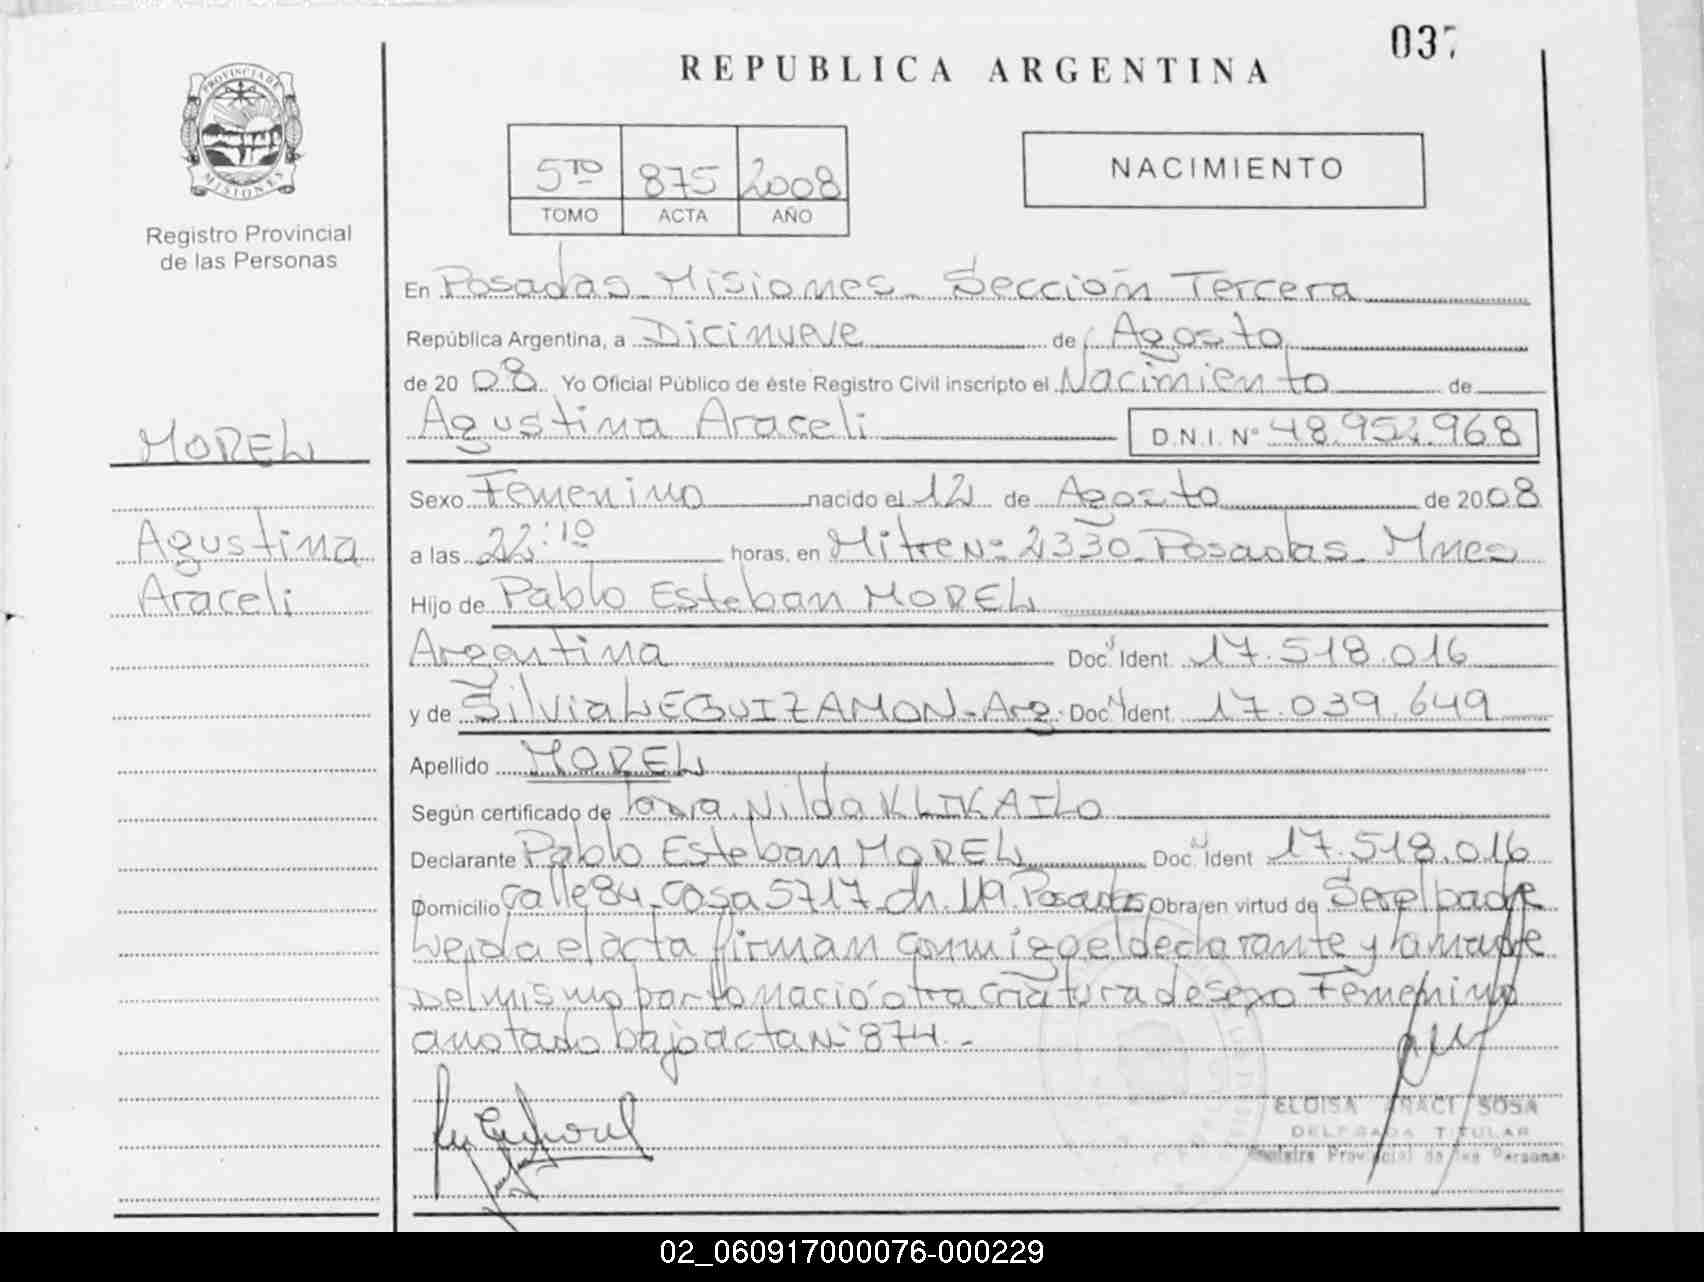 037
REPUBLICA ARGENTINA
PROVINCIA DE
MISIONES
Registro Provincial
de las Personas
5TO 875 2008
TOMO ACTA AÑO
NACIMIENTO
En Posadas Misiones - Sección Tercera
República Argentina, a Dicinueve de Agosto
de 20 08 Yo Oficial Público de éste Registro Civil inscripto el Nacimiento de
Agustina Araceli D.N.I. Nº 48.952.968
MOREL
Sexo Femenino nacido el 12 de Agosto de 2008
Agustina
Araceli
a las 22:10 horas, en Mitre Nº 2330 Posadas - Mnes
Hijo de Pablo Esteban MOREL
Argentina Doc. Ident. 17.518.016
y de Silvia LEGUIZAMON - Arg. Doc. Ident. 17.039.649
Apellido MOREL
Según certificado de Nilda KLIKAILO
Declarante Pablo Esteban MOREL Doc. Ident 17.518.016
Domicilio Calle 84 - Casa 5717 - ch. 119. Posadas Obra en virtud de Ser el padre
Leida el acta firman conmigo el declarante y la madre
Del mismo parto nació otra criatura de sexo Femenino
anotado bajo acta Nº 874.-
ELOISA ARACI SOSA
DELEGADA TITULAR
Registro Provincial de las Personas
02_060917000076-000229